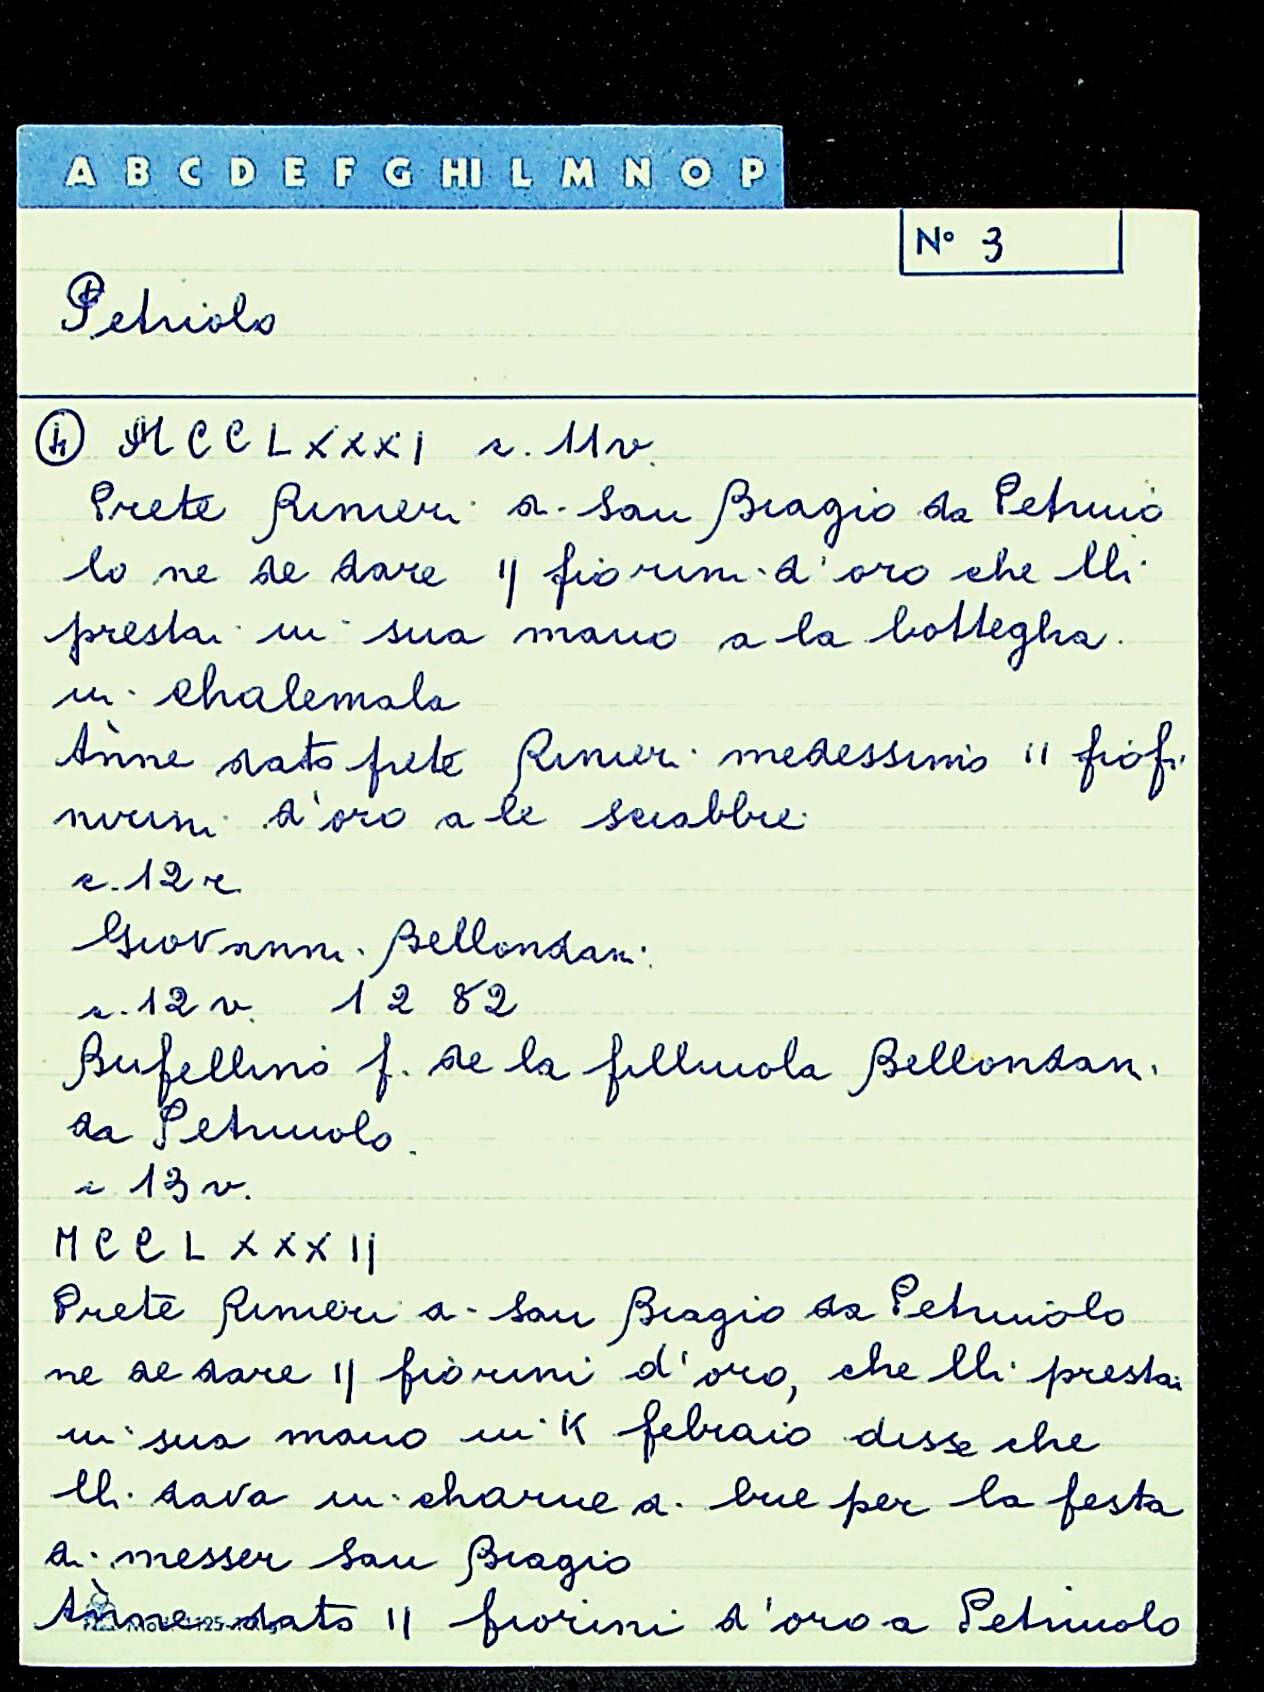 A B C D E F G HI L M N O P
N° 3
Petriolo
MCCLXXXI c. 11v.
Prete Rinieri di San Biagio da Petriuo
lo ne de dare II fiorini d'oro che lli
prestai in sua mano a la bottegha
in chalemala
Ànne dato prete Rinieri medessimo II
d'oro a le
c. 12r
Giovanni Bellondani
c. 12v. 1282
Bufellino f. de la filliuola Bellondani
da Petriuolo.
c 13v.
MCCLXXXIJ
Prete Rinieri di San Biagio da Petriuolo
ne de dare IJ fiorini d'oro, che lli prestai
in sua mano in K febraio disse che
lli dava in charne di bue per la festa
di messer San Biagio
Ànne dato IJ fiorini d'oro a Petriuolo